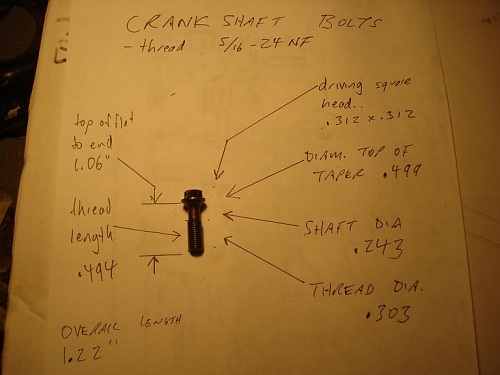 CRANK SHAFT BOLTS
- thread 5/16 - 24 NF
driving square
head..
.312 x .312
top of flat
to end
1.06"
DIAM. TOP OF
TAPER .499
thread
length
.494
SHAFT DIA
.243
THREAD DIA.
.303
OVERALL LENGTH
1.22"